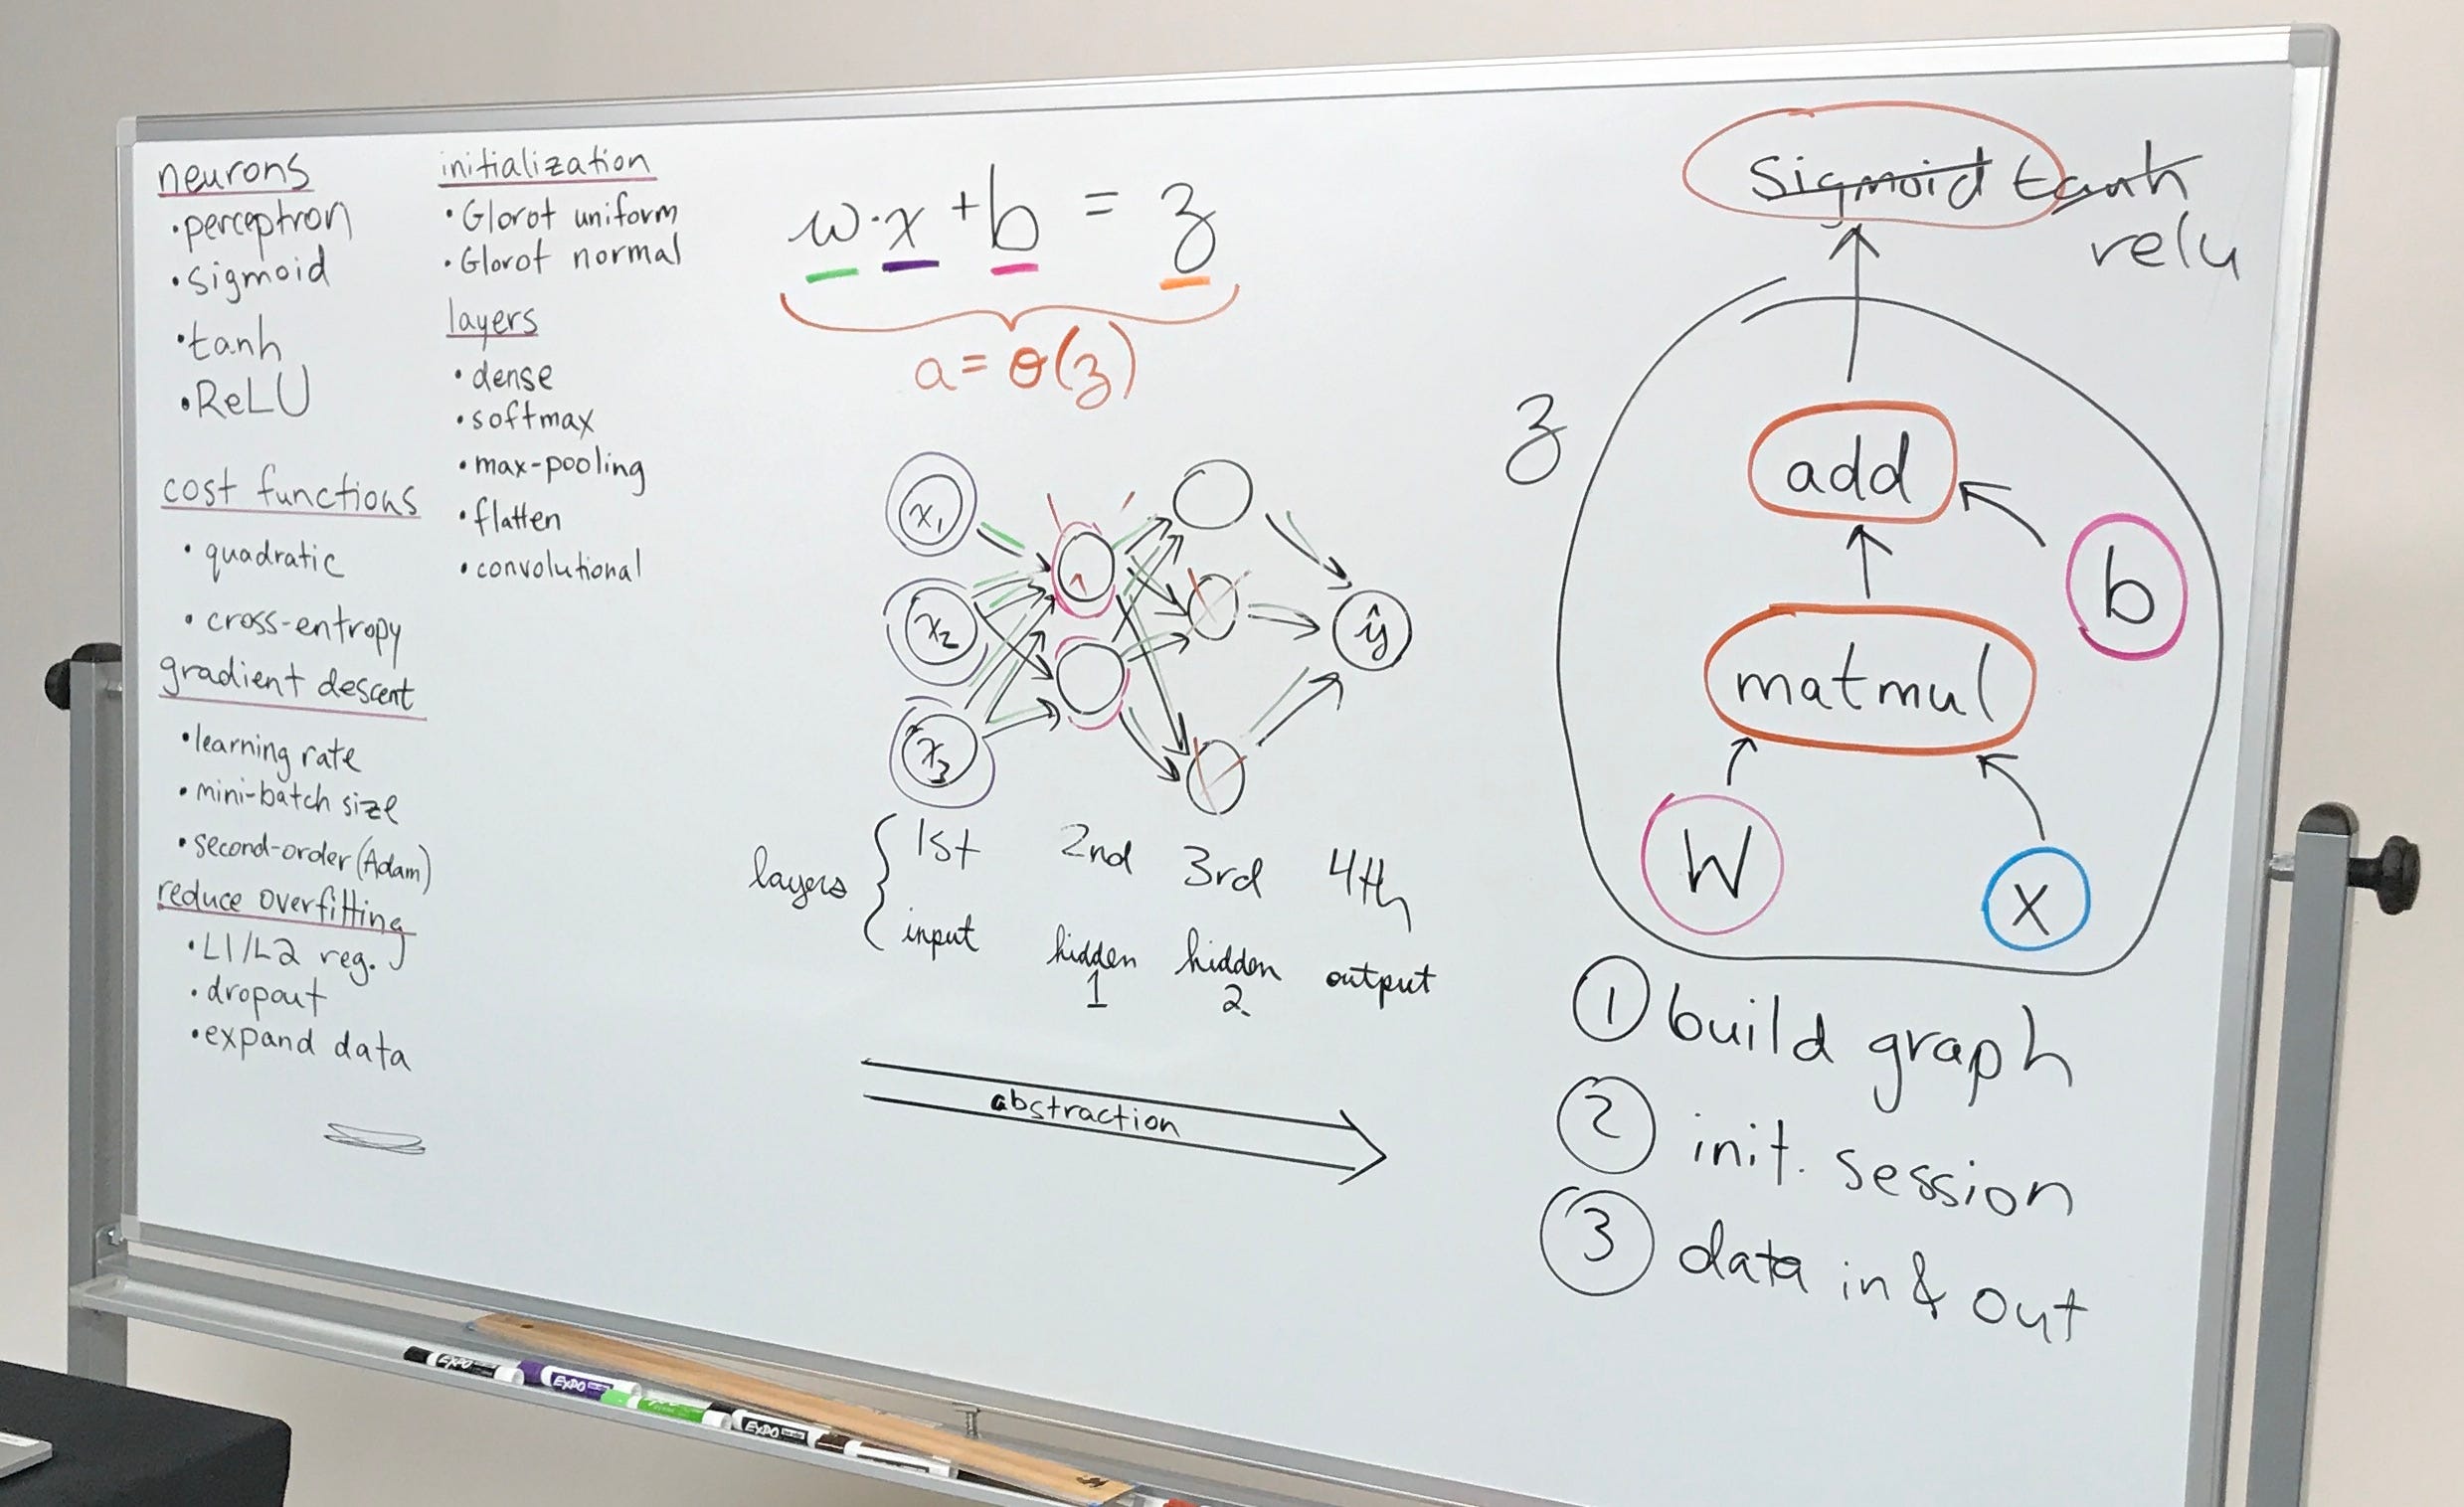 neurons
•perceptron
•sigmoid
•tanh
•ReLU
cost functions
•quadratic
•cross-entropy
gradient descent
•learning rate
•mini-batch size
•second-order (Adam)
reduce overfitting
•L1/L2 reg.
•dropout
•expand data
initialization
•Glorot uniform
•Glorot normal
layers
•dense
•softmax
•max-pooling
•flatten
•convolutional
w·x + b = z
a = σ(z)
x₁
x₂
x₃
ŷ
layers { 1st 2nd 3rd 4th
input hidden 1 hidden 2 output
abstraction
sigmoid tanh
relu
z
add
b
matmul
W
x
① build graph
② init. session
③ data in & out
EXPO
EXPO
EXPO